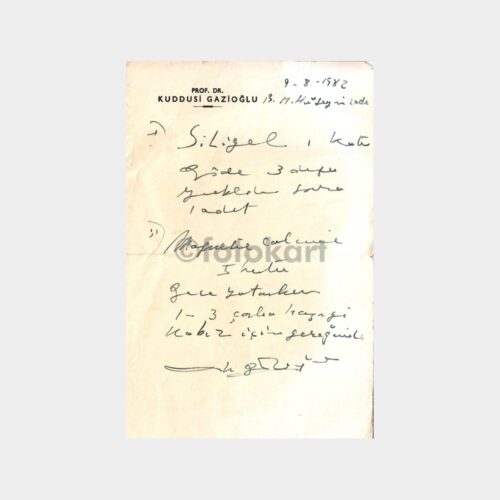 9-8-1982
PROF. DR.
KUDDUSİ GAZİOĞLU B. M. Hüseyinzade
1) Siligel 1 Kutu
Günde 3 defa
yemekten sonra
1 adet
2) Magnesie Calcinée
1 kutu
Gece yatarken
1-3 çorba kaşığı
Kabız için gereğinde
©fotokart